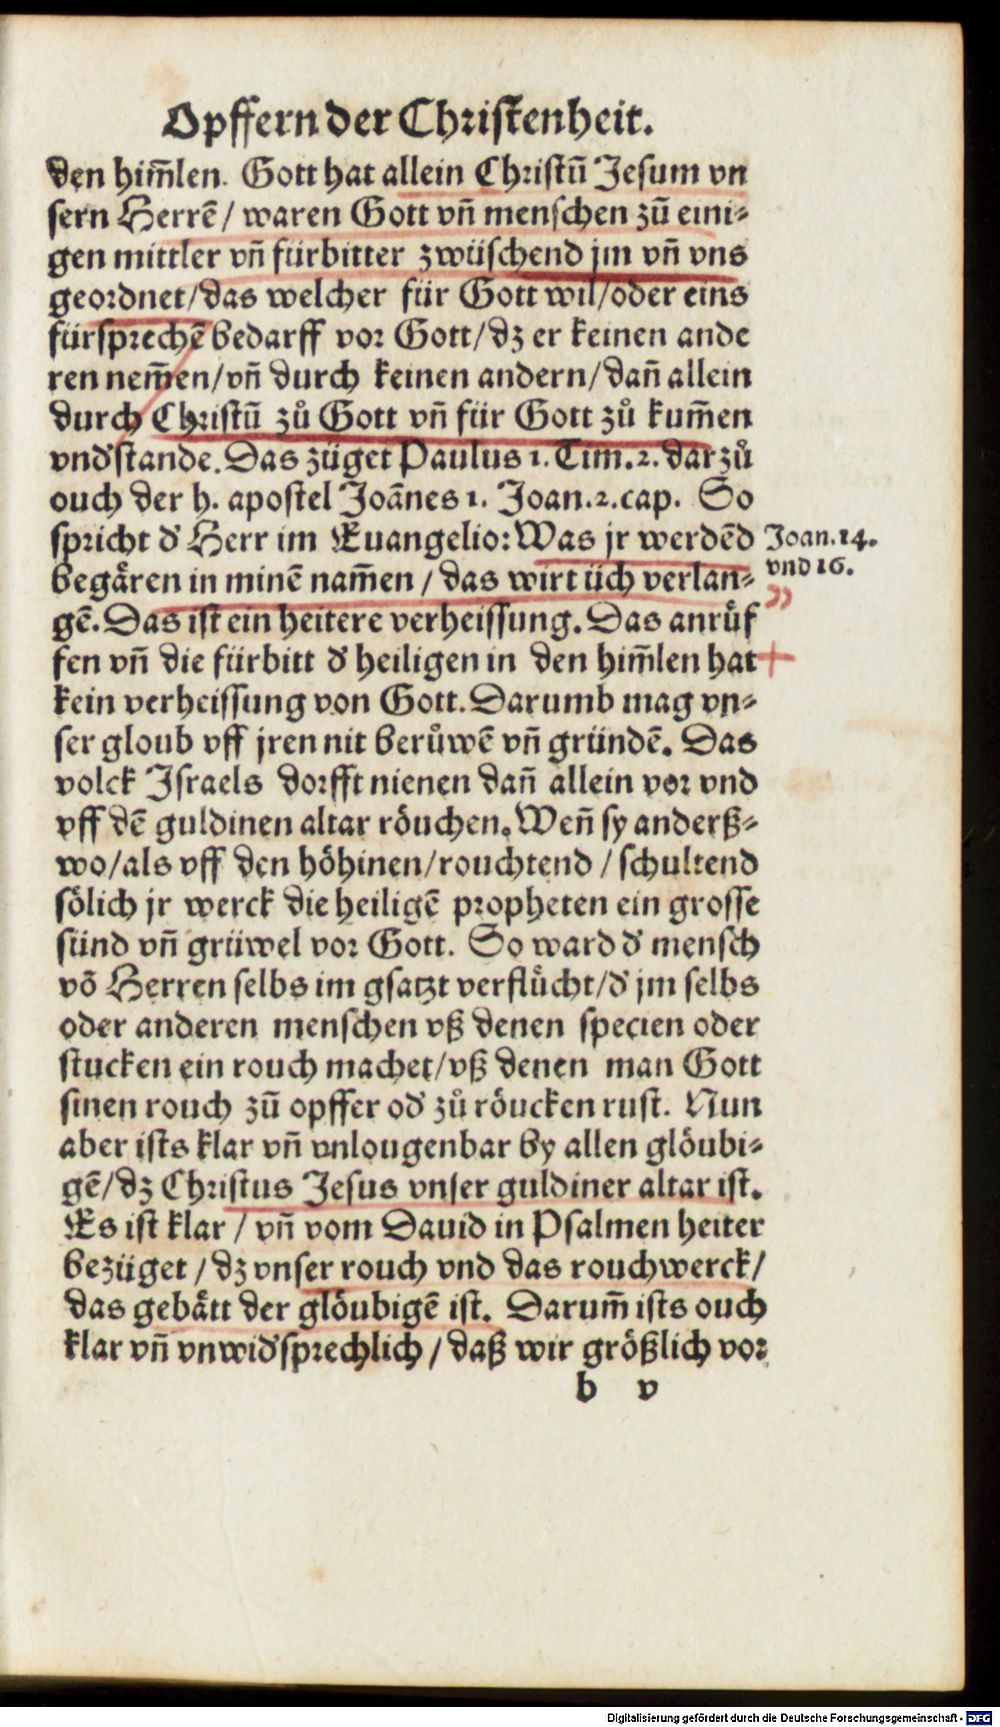 Opffern der Christenheit.
den him̄len. Gott hat allein Christū Jesum vn
sern Herrē/ waren Gott vn̄ menschen zū eini⸗
gen mittler vn̄ fürbitter zwüschend jm vn̄ vns
geordnet/das welcher für Gott wil/oder eins
fürsprechē bedarff vor Gott/dz er keinen ande
ren nem̄en/vn̄ durch keinen andern/dan̄ allein
durch Christū zů Gott vn̄ für Gott zů kum̄en
vnd'stande. Das züget Paulus 1. Tim. 2. darzů
ouch der h. apostel Joānes 1. Joan. 2. cap. So
spricht d' Herr im Euangelio: Was jr werdēd
Joan. 14.
vnd 16.
begären in minē nam̄en / das wirt üch verlan⸗
gē. Das ist ein heitere verheissung. Das anrüf
fen vn̄ die fürbitt d' heiligen in den him̄len hat
kein verheissung von Gott. Darumb mag vn⸗
ser gloub vff jren nit berůwē vn̄ gründē. Das
volck Israels dorfft nienen dan̄ allein vor vnd
vff dē guldinen altar röuchen. Wen̄ sy anderß⸗
wo/als vff den höhinen/rouchtend / schultend
sölich jr werck die heiligē propheten ein grosse
sünd vn̄ grüwel vor Gott. So ward d' mensch
vō Herren selbs im gsatzt verflücht/d' jm selbs
oder anderen menschen vß denen specien oder
stucken ein rouch machet/vß denen man Gott
sinen rouch zū opffer od' zů röucken rust. Nun
aber ists klar vn̄ vnlougenbar by allen glöubi⸗
gē/dz Christus Jesus vnser guldiner altar ist.
Es ist klar / vn̄ vom Dauid in Psalmen heiter
bezüget / dz vnser rouch vnd das rouchwerck/
das gebätt der glöubigē ist. Darum̄ ists ouch
klar vn̄ vnwid'sprechlich / daß wir größlich vor
b v
Digitalisierung gefördert durch die Deutsche Forschungsgemeinschaft - DFG